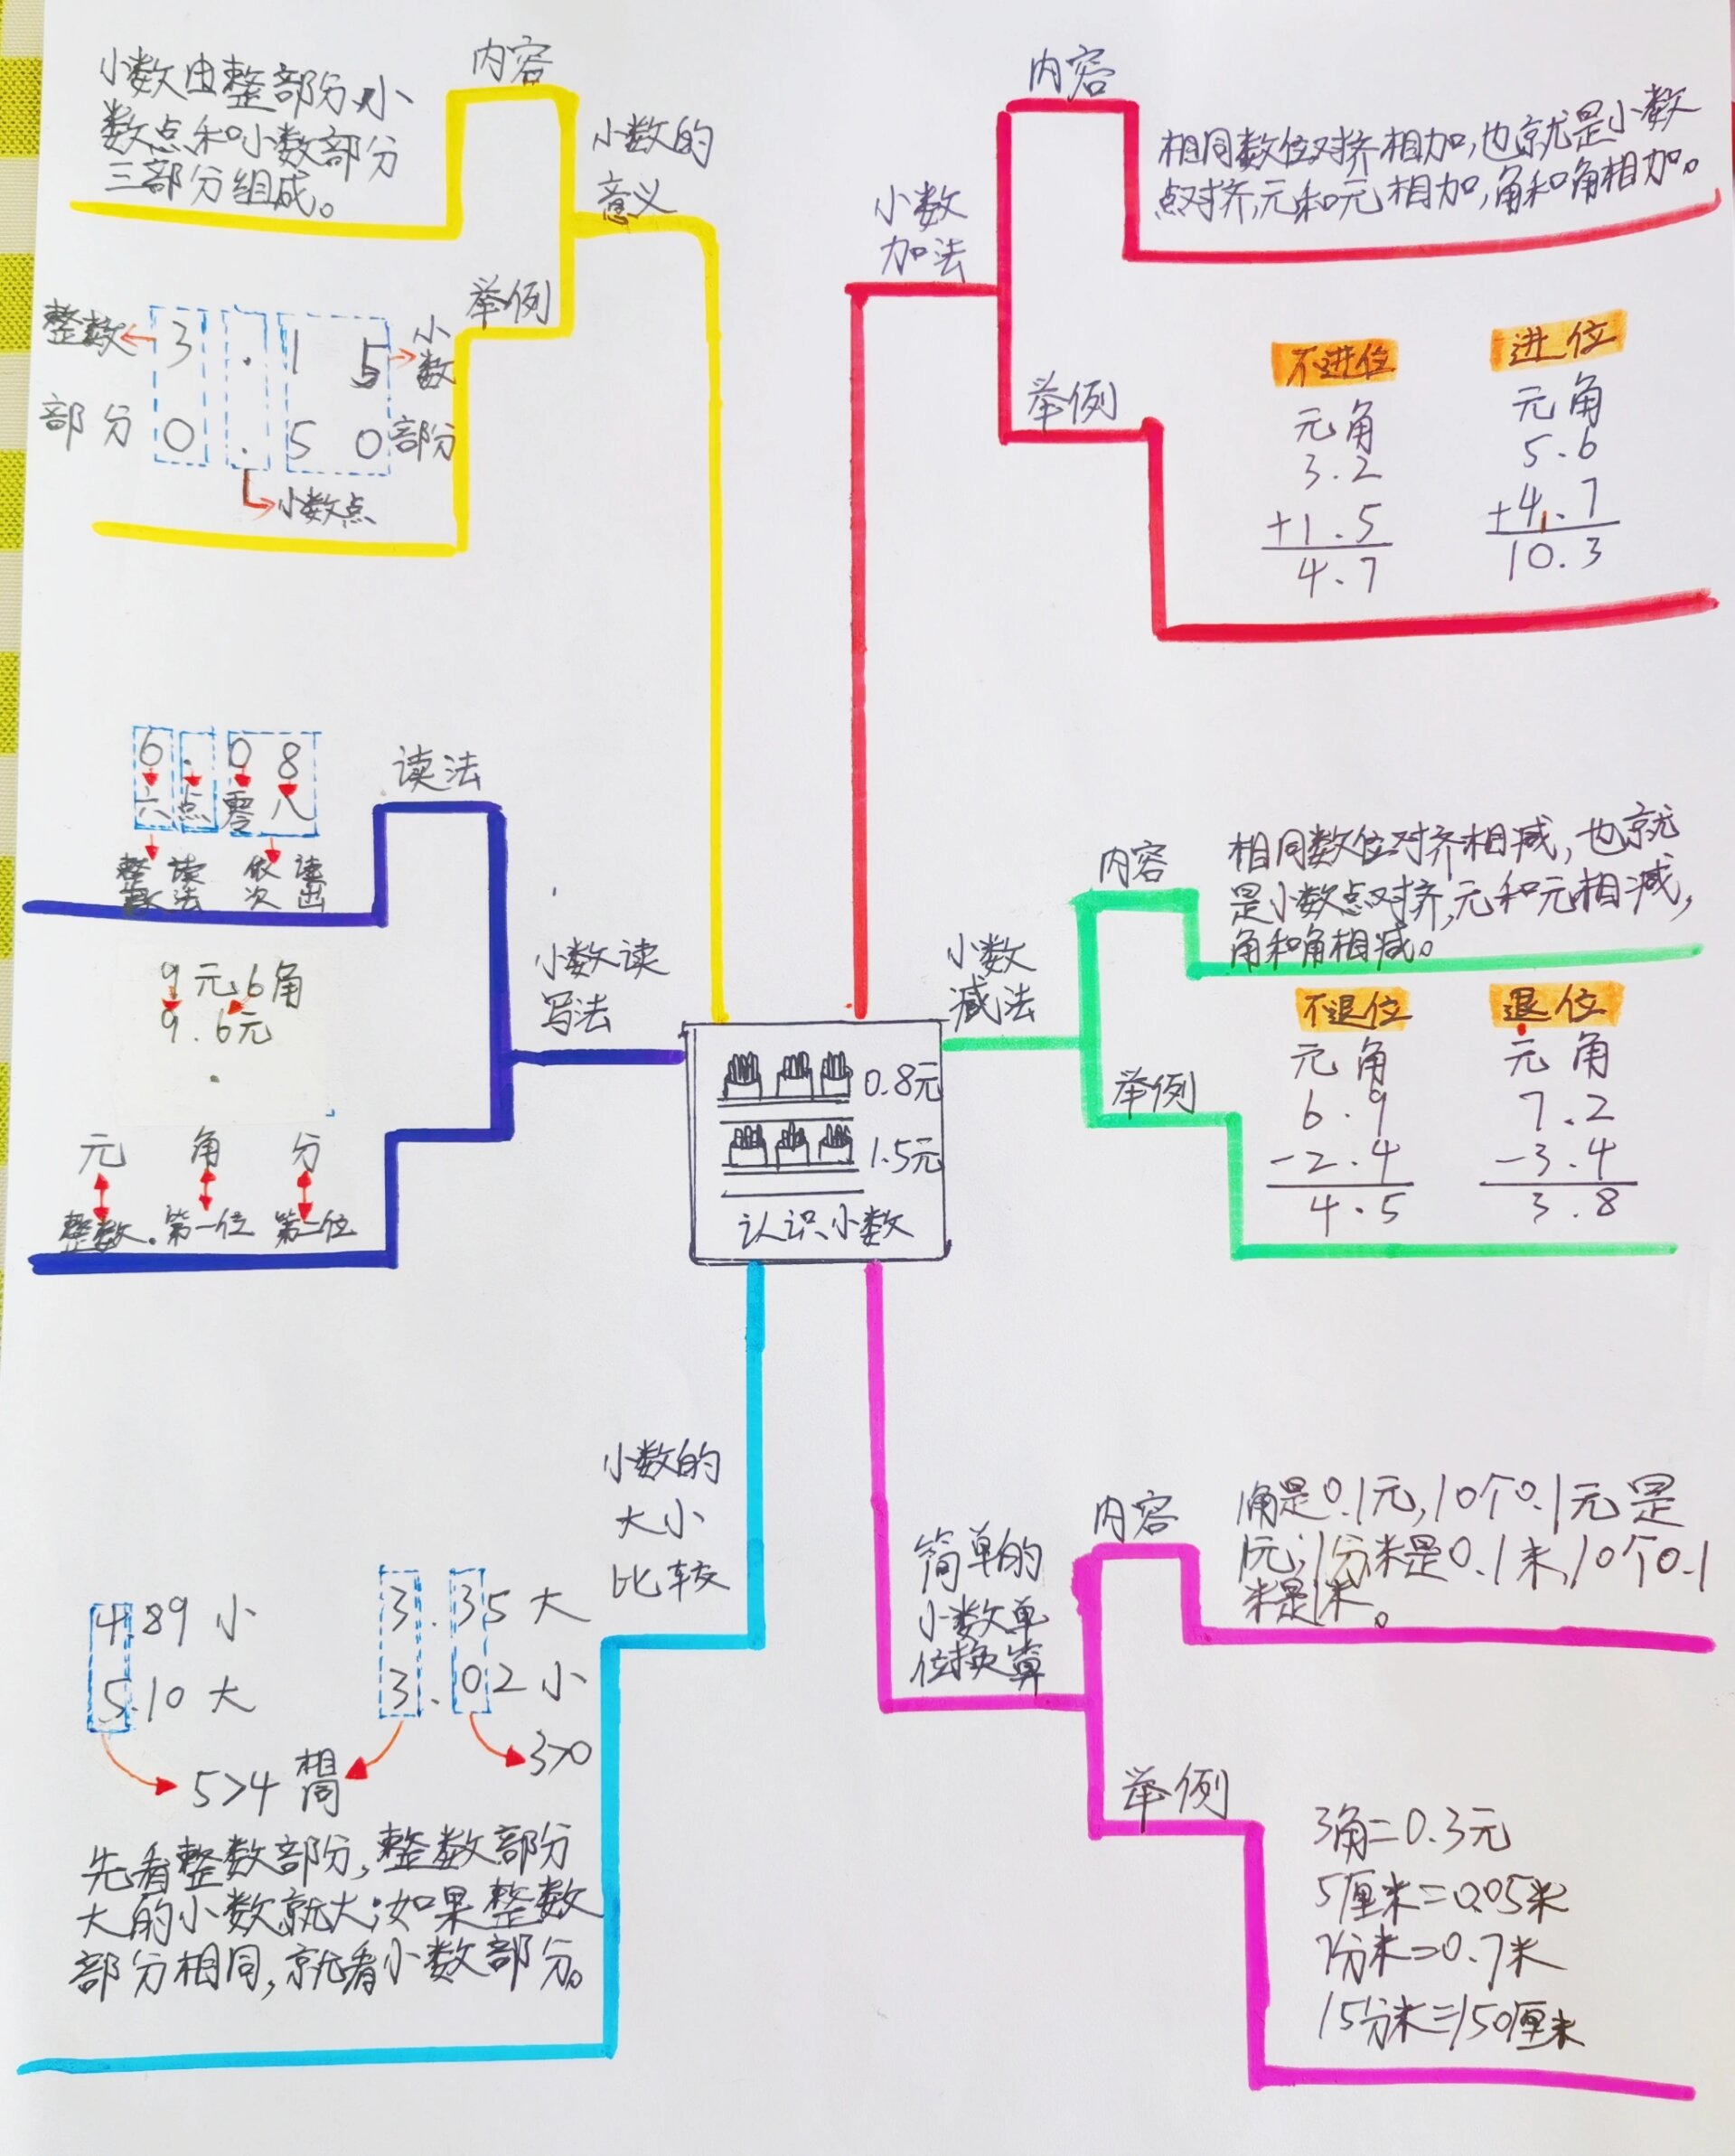 内容
小数由整部分、小
数点和小数部分
三部分组成。
小数的
意义
举例
整数 3 . 1 5 小数
部分 0 . 5 0 部份
小数点
读法
6 . 0 8
六 点 零 八
整数 读法 依次 读出
小数读
写法
9元6角
9.6元
元 角 分
整数 . 第一位 第二位
0.8元
1.5元
认识小数
小数的
大小
比较
4.89 小
5.10 大
5>4
3.35 大
3.02 小
相同
3>0
先看整数部分,整数部分
大的小数就大;如果整数
部分相同,就看小数部分。
内容
相同数位对齐相加,也就是小数
点对齐,元和元相加,角和角相加。
小数
加法
举例
不进位
元角
3.2
+1.5
4.7
进位
元角
5.6
+4.7
1
10.3
内容
相同数位对齐相减,也就
是小数点对齐,元和元相减,
角和角相减。
小数
减法
举例
不退位
元 角
6.9
-2.4
4.5
退位
元 角
7.2
-3.4
3.8
简单的
小数单
位换算
内容
1角是0.1元,10个0.1元是
1元;1分米是0.1米,10个0.1
米是1米。
举例
3角=0.3元
5厘米=0.05米
7分米=0.7米
15分米=150厘米